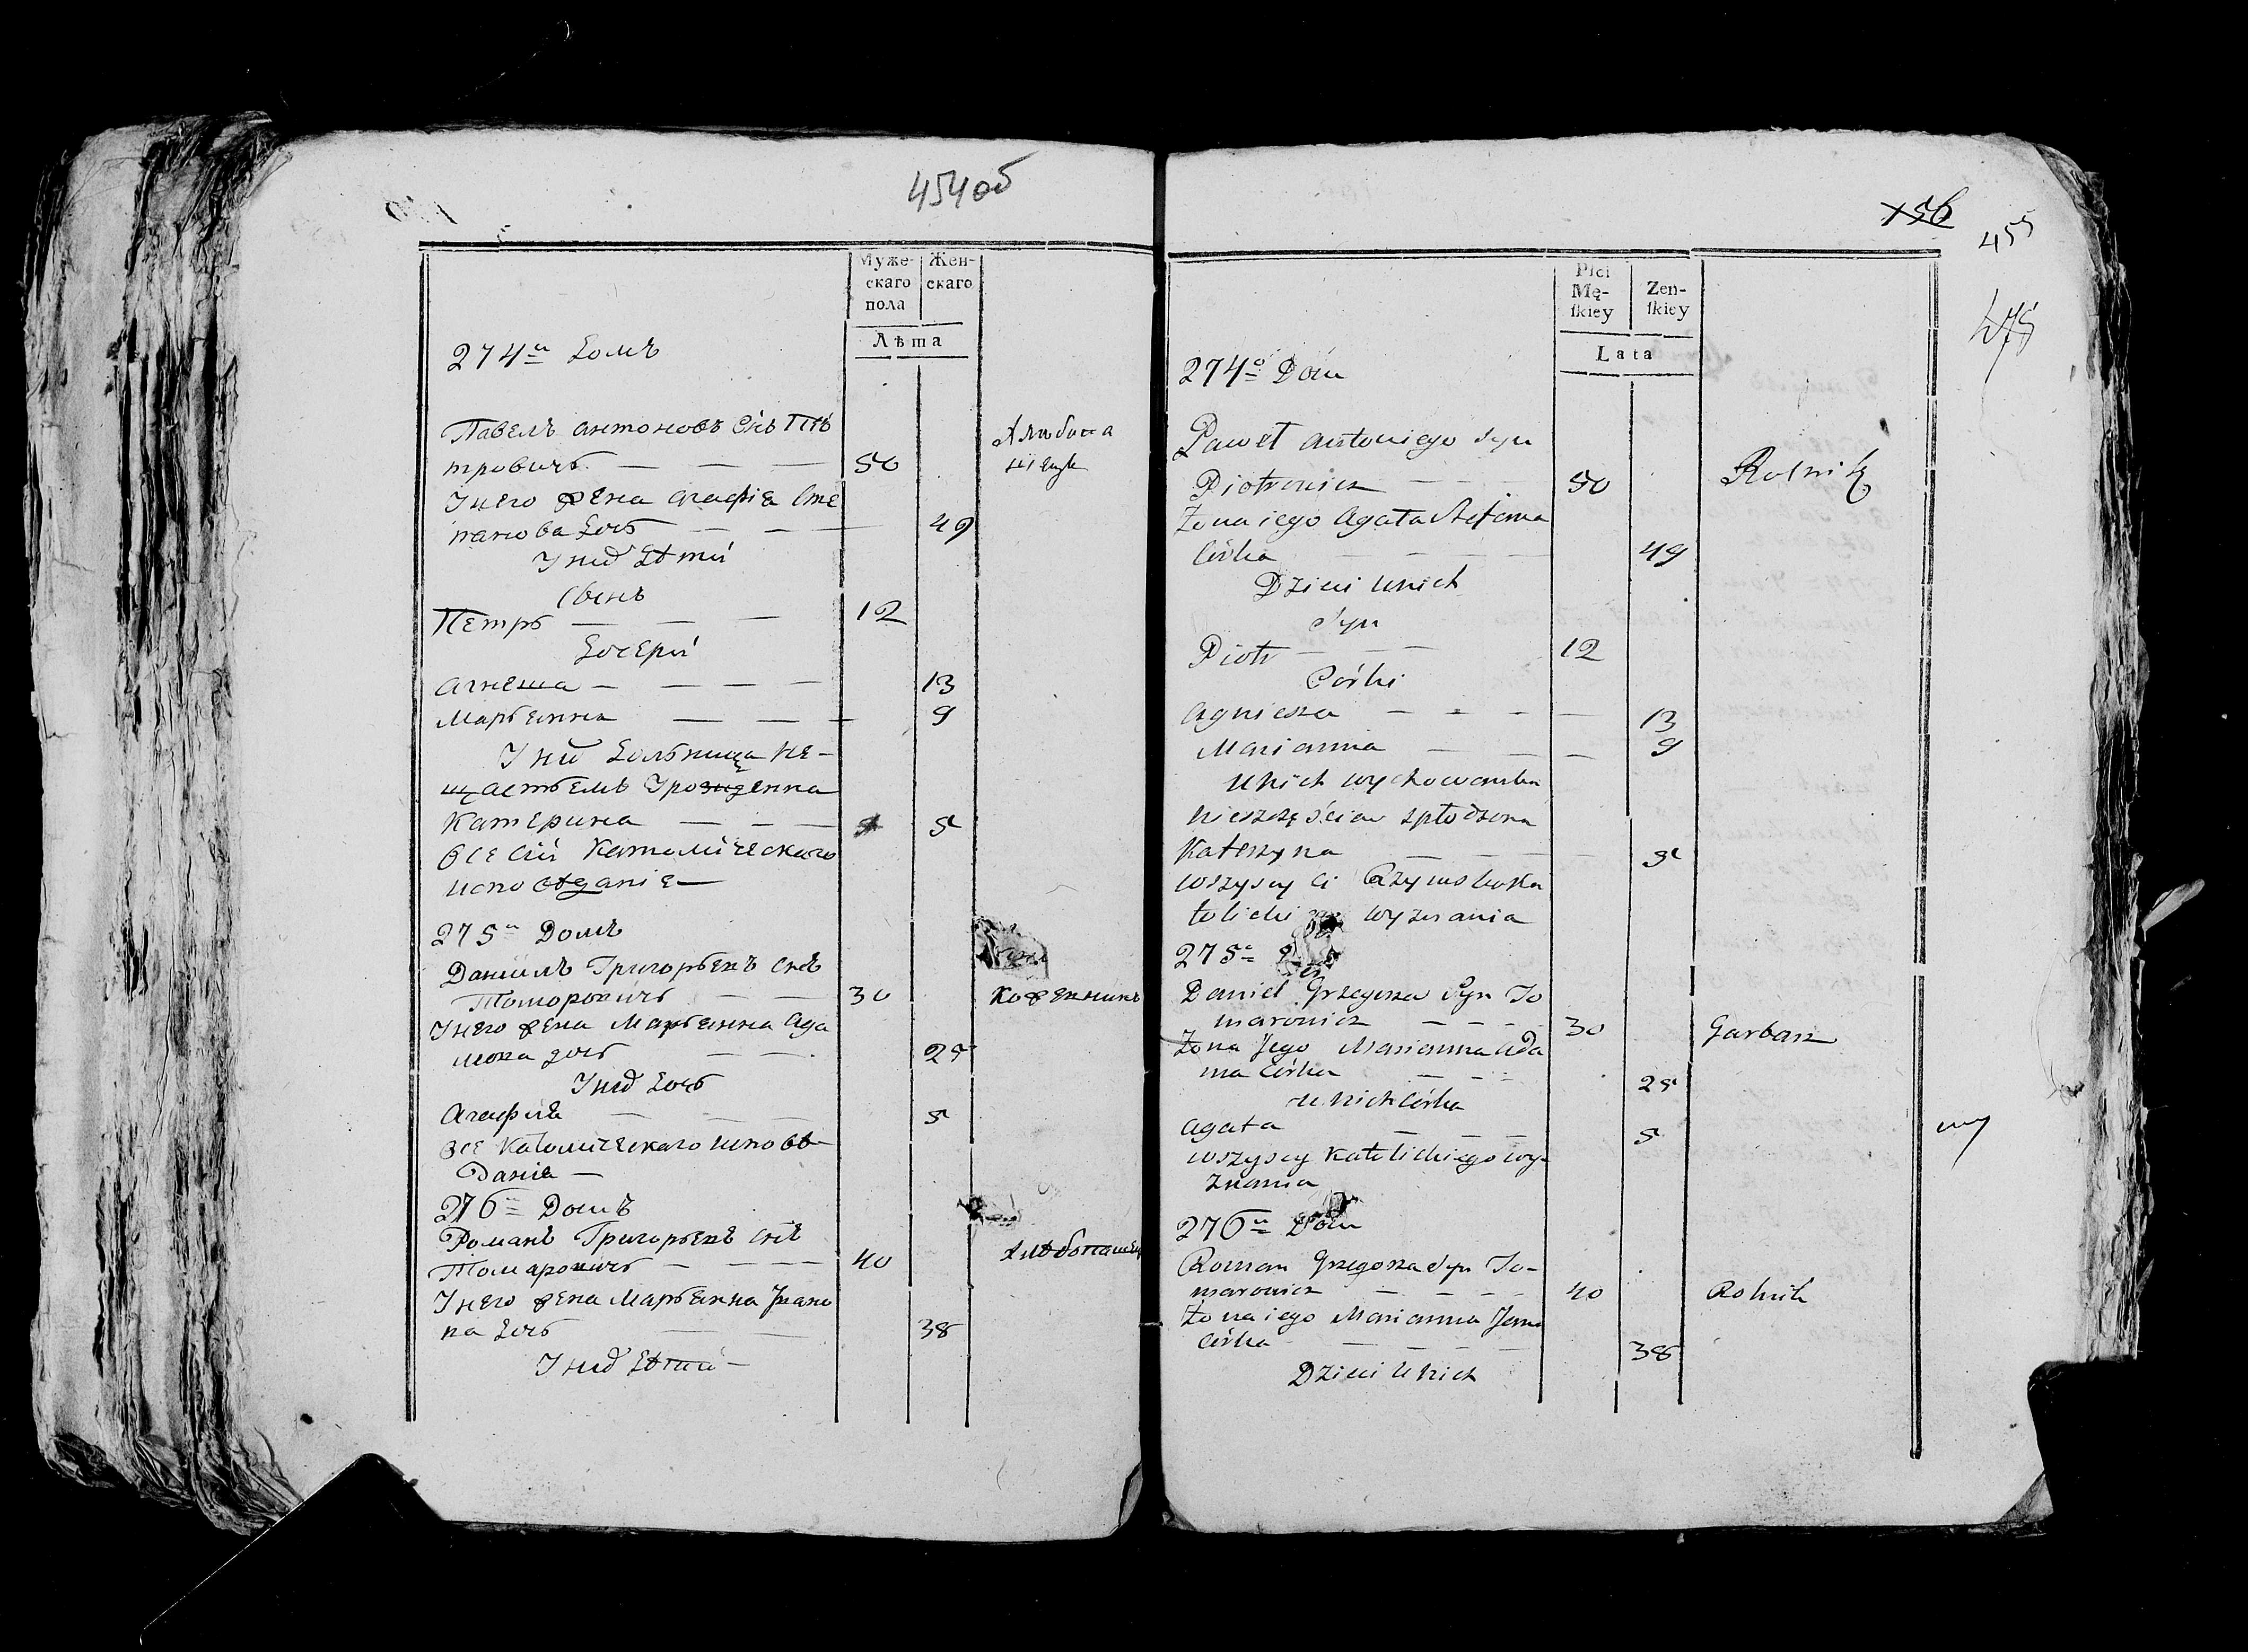 454 об
Муже-
скаго
пола
Жен-
скаго
Лѣта
274й Домъ
Павелъ Антоновъ Снъ Пѣ
тровичъ — — — 50
Хлѣбопа
шецъ
У него жена Агафія Сте
панова дочь — — 49
У них дѣти
Сынъ
Петръ — — — 12
Дочери
Агнеша — — — — 13
Марьянна — — — 9
У них
нещастьемъ
Катерина — — — 5
Все сіи Католическаго
исповѣданіе —
275й Домъ
Даніилъ Григорьевъ Снъ
Томоровичъ — — 30
Кожевникъ
У него жена Марьянна Ада
мова дочь — — 25
У них дочь
Агафія — — — 5
Все Католическаго исповѣ-
Даніе —
276й Домъ
Романъ Григорьевъ Снъ
Томаровичъ — — — — 40
Хлѣбопашец
У него жена Марьянна Ивано
ва дочь — — 38
У них Дѣти —
156
455
475
Płci
Mę-
ſkiey
Zeń-
ſkiey
Lata
274o Dom
Paweł Antoniego Syn
Piotrowicz — — — 50
Rolnik
Żona iego Agata Stefana
Córka — — — 49
Dzieci u nich
Syn
Piotr — — — 12
Córki
Agniesza — — — — 13
Marianna — — — 9
U nich wychowanka
nieszczęściem spłodzona
Katerzyna — — — 5
wszyscy ci Rzymskoka
tolickiego wyznania
275o
Daniel Grzegorza Syn To
marowicz — — — 30
Garbarz
Żona Jego Marianna Ada
ma Córka — — — 25
u nich Córka
Agata — — — 5
wszyscy Katolickiego wy-
znania
276o Dom
Roman Grzegorza Syn To-
marowicz — — — — 40
Rolnik
Żona iego Marianna Jana
Córka — — — — 38
Dzieci u nich